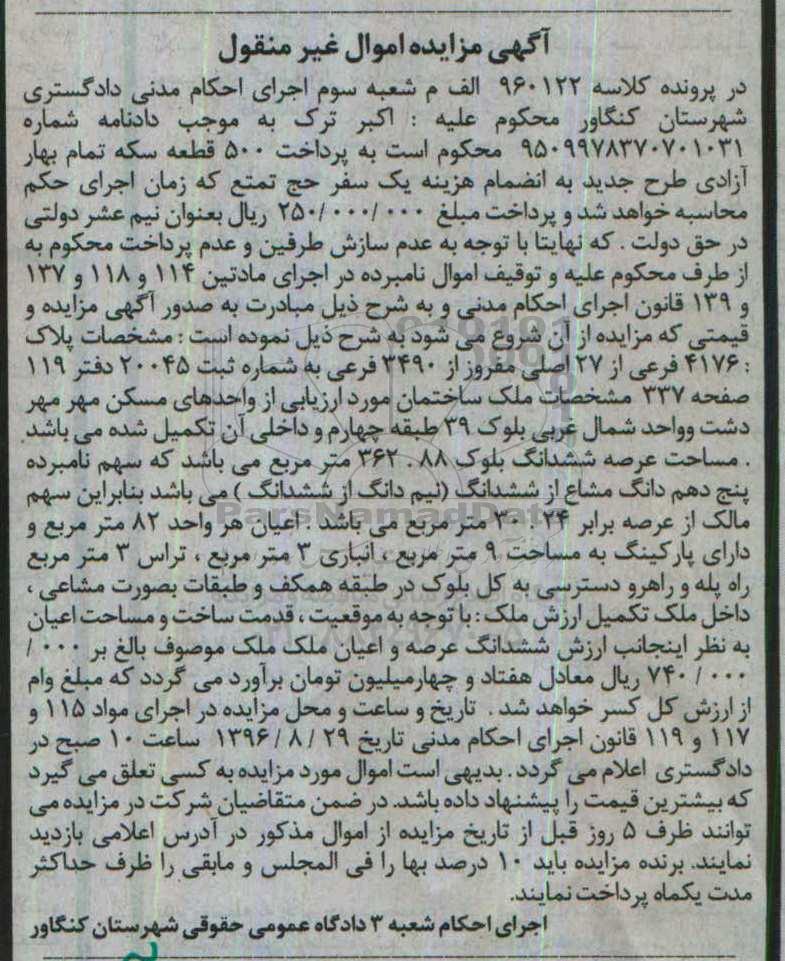 آگهی مزایده اموال غیر منقول
در پرونده کلاسه ۹۶۰۱۲۲ الف م شعبه سوم اجرای احکام مدنی دادگستری
شهرستان کنگاور محکوم علیه : اکبر ترک به موجب دادنامه شماره
۹۵۰۹۹۷۸۳۷۰۷۰۱۰۳۱ محکوم است به پرداخت ۵۰۰ قطعه سکه تمام بهار
آزادی طرح جدید به انضمام هزینه یک سفر حج تمتع که زمان اجرای حکم
محاسبه خواهد شد و پرداخت مبلغ ۲۵۰/۰۰۰/۰۰۰ ریال بعنوان نیم عشر دولتی
در حق دولت . که نهایتا با توجه به عدم سازش طرفین و عدم پرداخت محکوم به
از طرف محکوم علیه و توقیف اموال نامبرده در اجرای مادتین ۱۱۴ و ۱۱۸ و ۱۳۷
و ۱۳۹ قانون اجرای احکام مدنی و به شرح ذیل مبادرت به صدور آگهی مزایده و
قیمتی که مزایده از آن شروع می شود به شرح ذیل نموده است : مشخصات پلاک
: ۴۱۷۶ فرعی از ۲۷ اصلی مفروز از ۳۴۹۰ فرعی به شماره ثبت ۲۰۰۴۵ دفتر ۱۱۹
صفحه ۳۳۷ مشخصات ملک ساختمان مورد ارزیابی از واحدهای مسکن مهر مهر
دشت وواحد شمال غربی بلوک ۳۹ طبقه چهارم و داخلی آن تکمیل شده می باشد
. مساحت عرصه ششدانگ بلوک ۳۶۲.۸۸ متر مربع می باشد که سهم نامبرده
پنج دهم دانگ مشاع از ششدانگ (نیم دانگ از ششدانگ ) می باشد بنابراین سهم
مالک از عرصه برابر ۳۰.۲۴ متر مربع می باشد . اعیان هر واحد ۸۲ متر مربع و
دارای پارکینگ به مساحت ۹ متر مربع ، انباری ۳ متر مربع ، تراس ۳ متر مربع
راه پله و راهرو دسترسی به کل بلوک در طبقه همکف و طبقات بصورت مشاعی ،
داخل ملک تکمیل ارزش ملک : با توجه به موقعیت ، قدمت ساخت و مساحت اعیان
به نظر اینجانب ارزش ششدانگ عرصه و اعیان ملک ملک موصوف بالغ بر ۰۰۰ /
۰۰۰ / ۷۴۰ ریال معادل هفتاد و چهارمیلیون تومان برآورد می گردد که مبلغ وام
از ارزش کل کسر خواهد شد . تاریخ و ساعت و محل مزایده در اجرای مواد ۱۱۵ و
۱۱۷ و ۱۱۹ قانون اجرای احکام مدنی تاریخ ۲۹ / ۸ / ۱۳۹۶ ساعت ۱۰ صبح در
دادگستری اعلام می گردد . بدیهی است اموال مورد مزایده به کسی تعلق می گیرد
که بیشترین قیمت را پیشنهاد داده باشد. در ضمن متقاضیان شرکت در مزایده می
توانند ظرف ۵ روز قبل از تاریخ مزایده از اموال مذکور در آدرس اعلامی بازدید
نمایند. برنده مزایده باید ۱۰ درصد بها را فی المجلس و مابقی را ظرف حداکثر
مدت یکماه پرداخت نمایند.
اجرای احکام شعبه ۳ دادگاه عمومی حقوقی شهرستان کنگاور
ParsNamadData